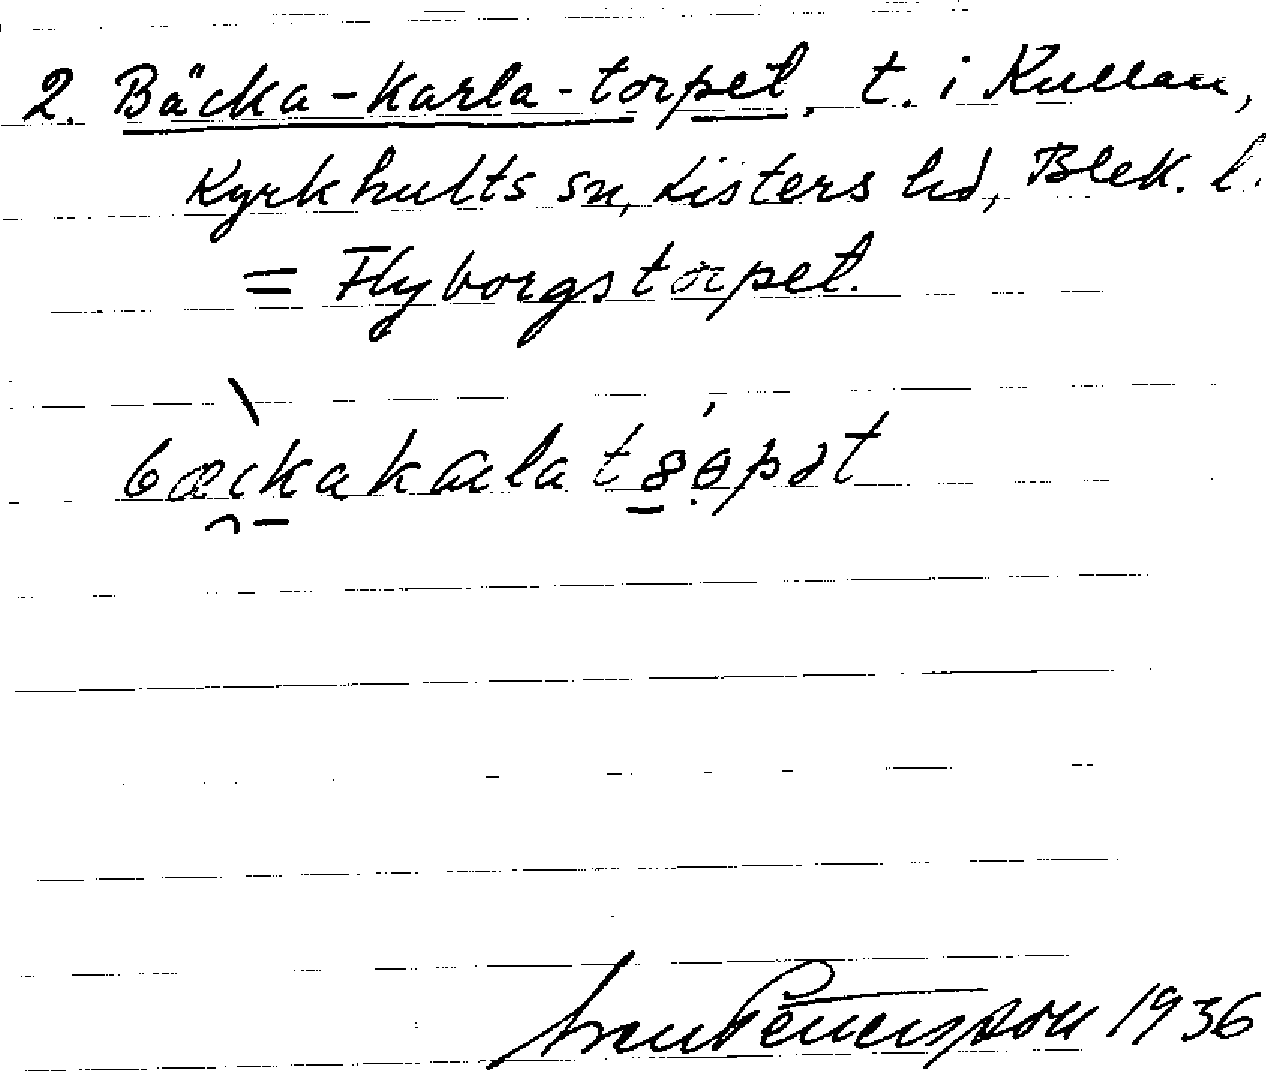 2. Bäcka-Karla-torpet, t. i Kullan,
Kyrkhults sn, Listers hd, Blek. l.
= Flyborgstorpet.
Pettersson 1936